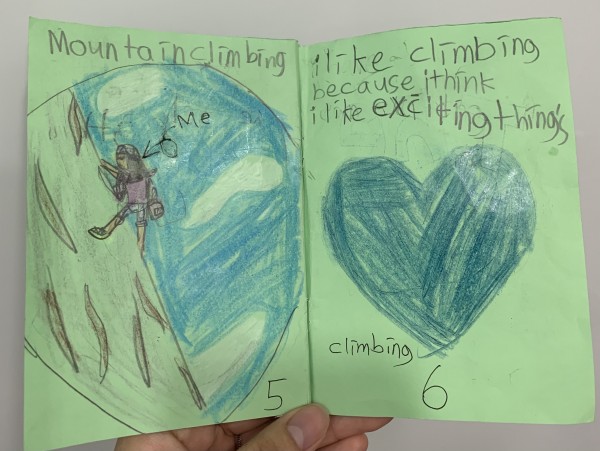 Mountainclimbing
Me
5
i like climbing
because ithink
i like exciting things
climbing
6